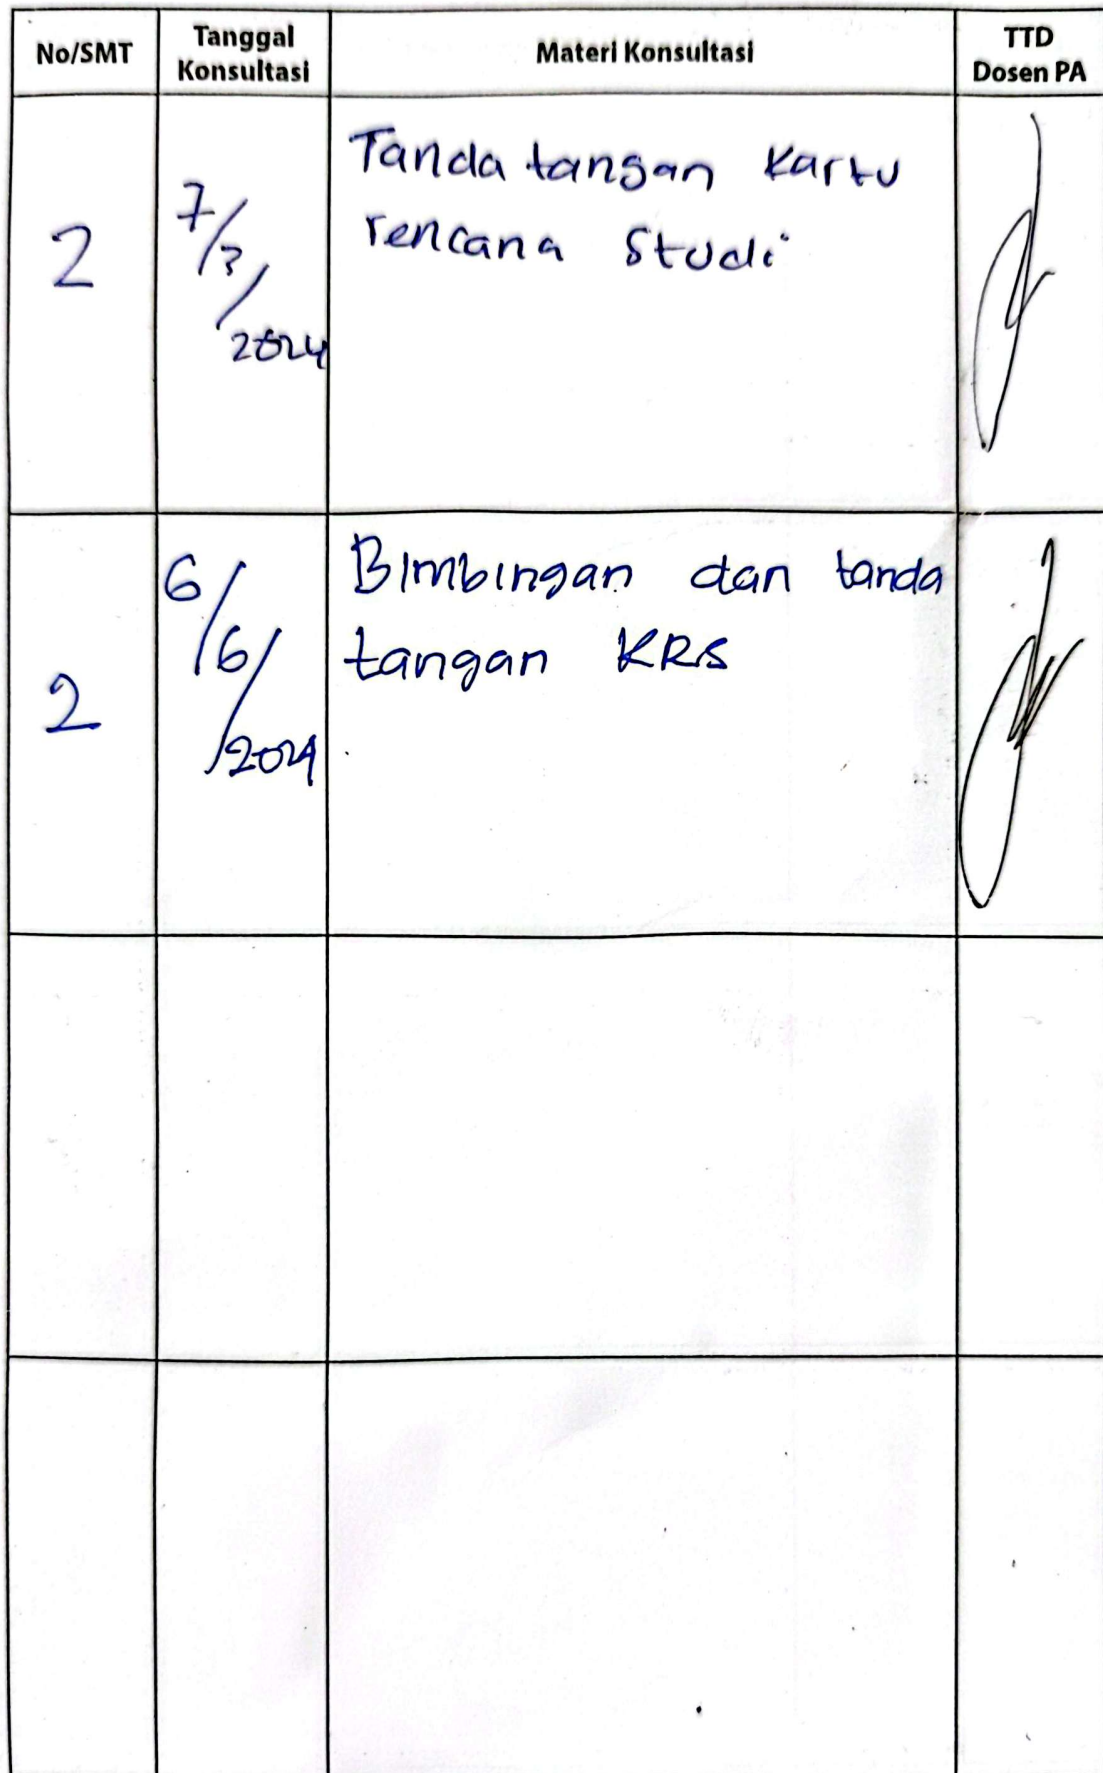 No/SMT
Tanggal
Konsultasi
Materi Konsultasi
TTD
Dosen PA
2
7/3/
2024
Tanda tangan Kartu
rencana Studi
2
6/
6/
2024
Bimbingan dan tanda
tangan KRS